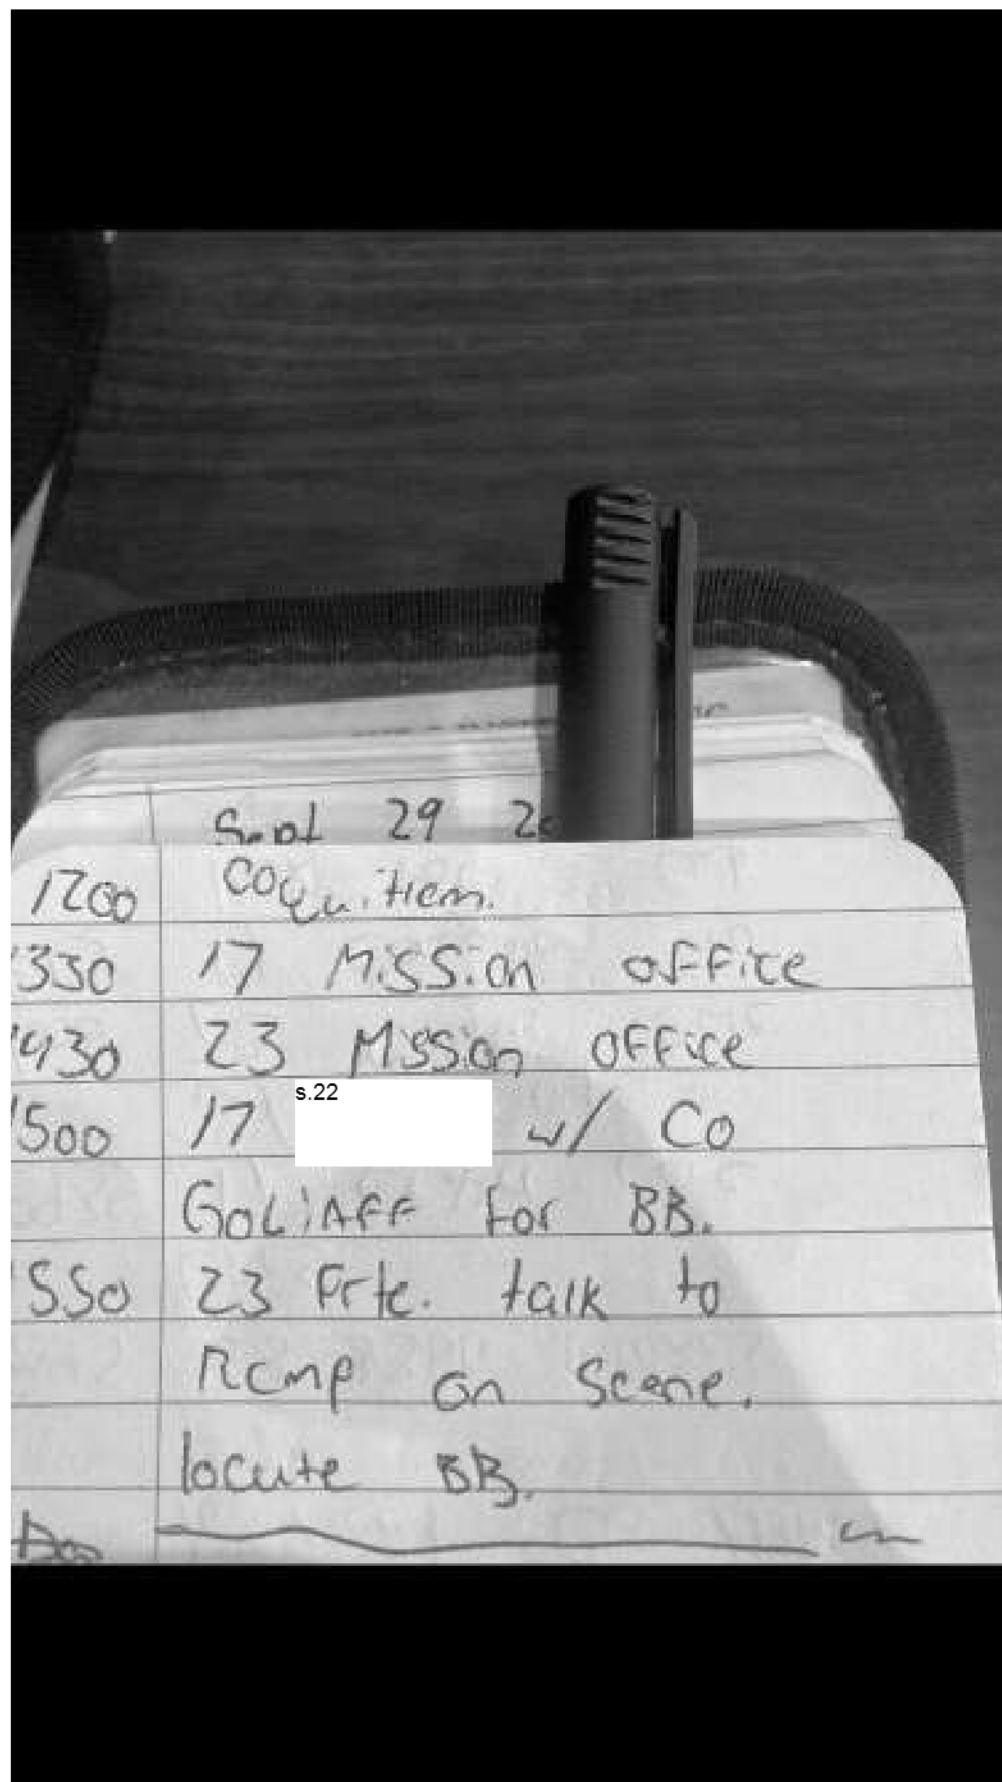 Sept 29
1200 Coquitlem.
330 17 Mission office
1430 23 Mission office
1500 17 s.22 w/ CO
GOLIAFF for BB.
1550 23 Frte. talk to
RCMP on scene.
locate BB.